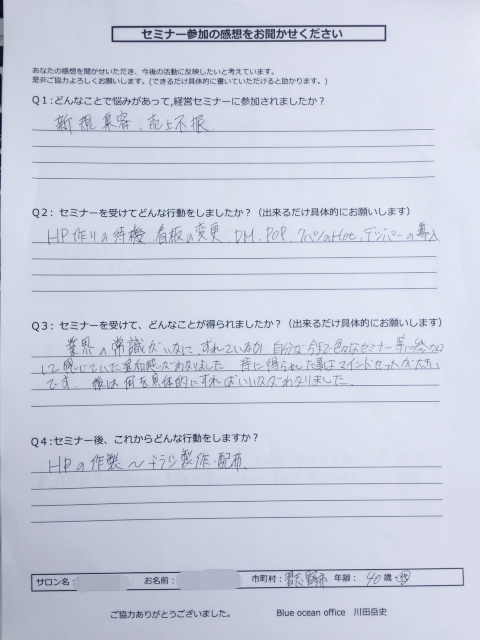 セミナー参加の感想をお聞かせください
あなたの感想を聞かせいただき、今後の活動に反映したいと考えています。
是非ご協力よろしくお願いします。(できるだけ具体的に書いていただけると助かります。)
Q1:どんなことで悩みがあって,経営セミナーに参加されましたか?
新規集客、売上不振
Q2: セミナーを受けてどんな行動をしましたか?(出来るだけ具体的にお願いします)
HP作りの待機 看板の変更 DM、POP、の導入
Q3: セミナーを受けて、どんなことが得られましたか?(出来るだけ具体的にお願いします)
業界の常識がいかに、ずれているか 自分が今まで色々なセミナー等に参加
して感じていた違和感がわかりました 特に得られた事はマインドセットが大きい
です。後は何を具体的にすればいいかがわかりました。
Q4:セミナー後、これからどんな行動をしますか?
HPの作製〜チラシ製作・配布
サロン名: お名前: 市町村: 年齢: 40歳・代
ご協力ありがとうございました。 Blue ocean office 川田岳史